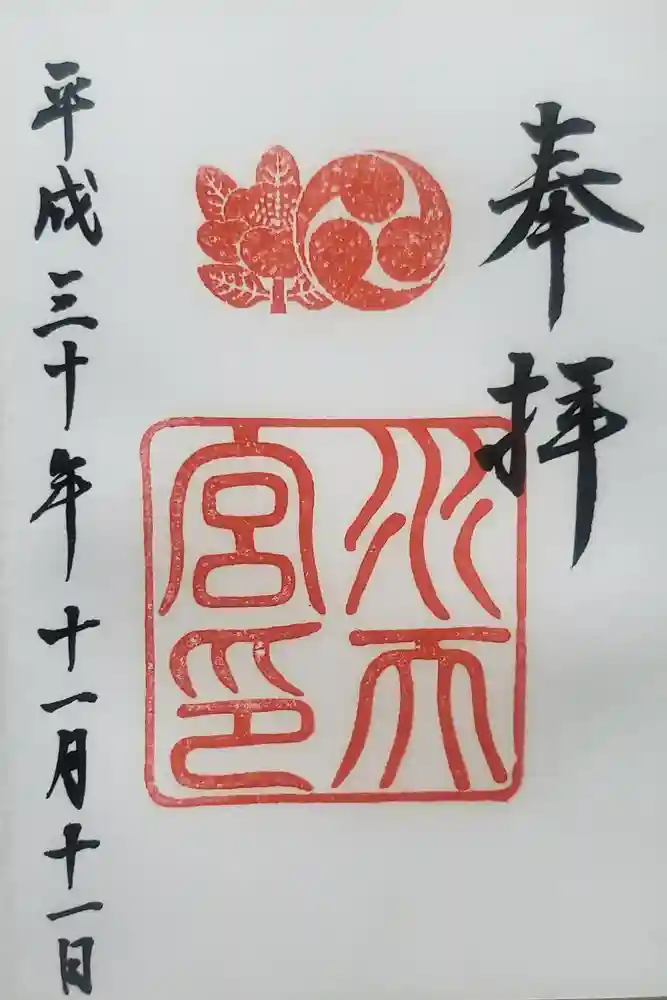 奉拝
水天
宮印
平成三十年十一月十一日